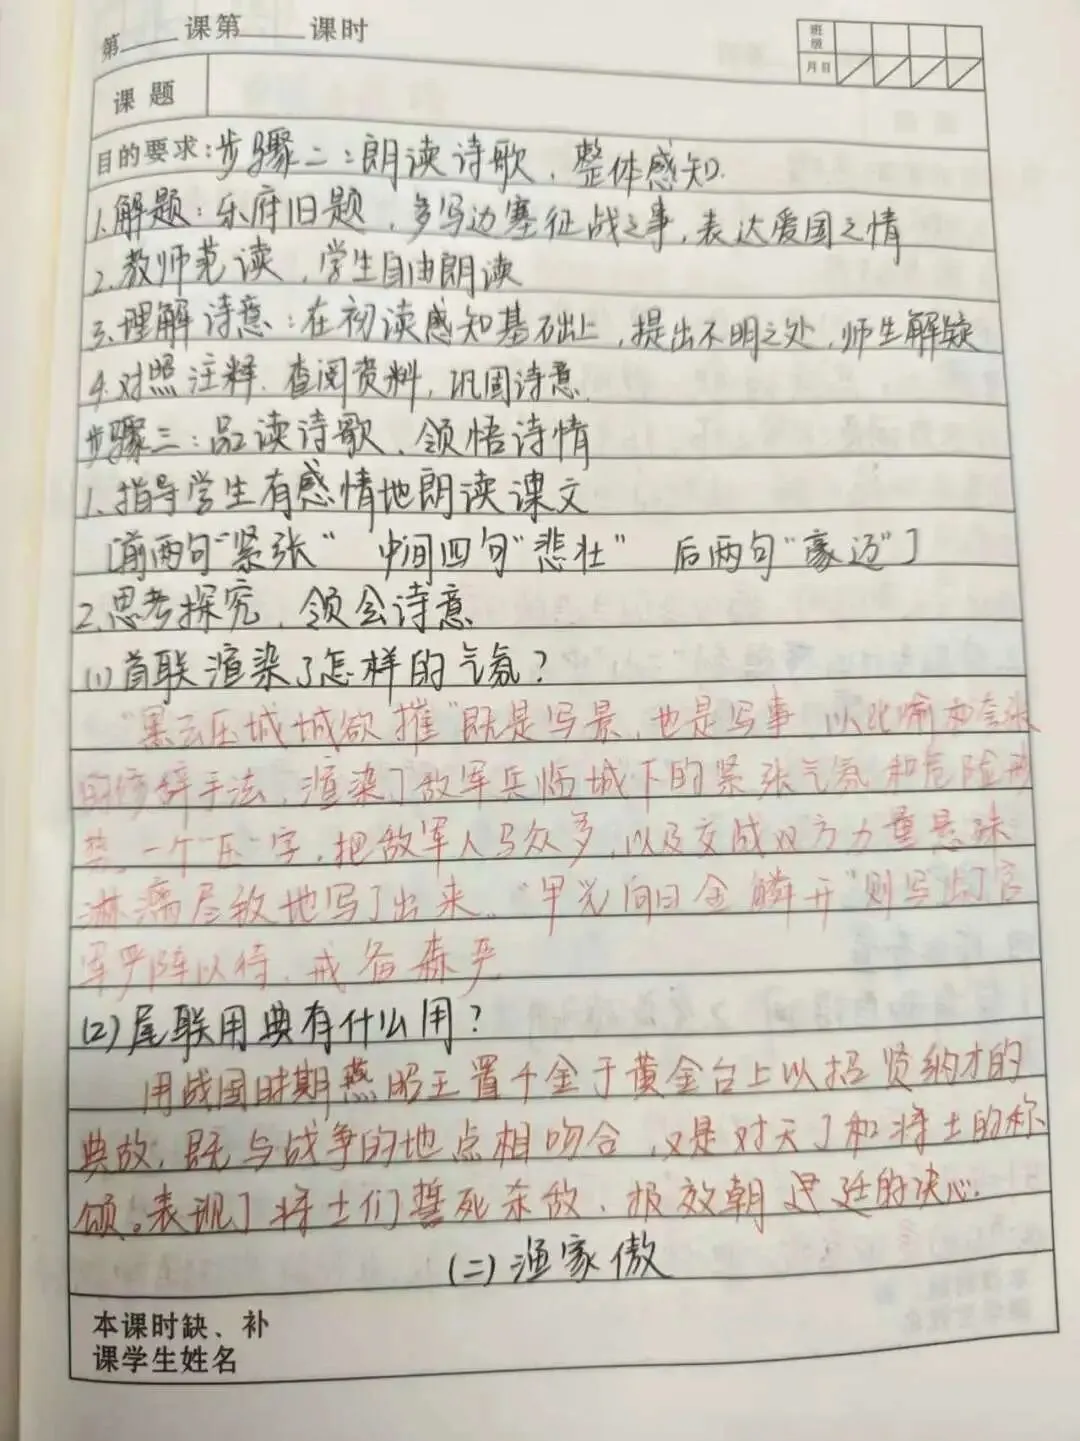 第 课第 课时
班级
月日
课题
目的要求:步骤二:朗读诗歌,整体感知.
1.解题:乐府旧题,多写边塞征战之事,表达爱国之情
2.教师范读,学生自由朗读
3.理解诗意:在初读感知基础上,提出不明之处,师生解疑
4.对照注释.查阅资料,巩固诗意.
步骤三:品读诗歌、领悟诗情
1.指导学生有感情地朗读课文
[前两句“紧张” 中间四句“悲壮” 后两句“豪迈”]
2.思考探究,领会诗意
(1)首联渲染了怎样的气氛?
“黑云压城城欲摧”既是写景,也是写事,以比喻和夸张
的修辞手法,渲染了敌军兵临城下的紧张气氛和危险形
势.一个“压”字,把敌军人马众多,以及交战双方力量悬殊
淋漓尽致地写了出来。“甲光向日金鳞开”则写出了官
军严阵以待,戒备森严
(2)尾联用典有什么用?
用战国时期燕昭王置千金于黄金台上以招贤纳才的
典故,既与战争的地点相吻合,又是对天子和将士的称
颂。表现了将士们誓死杀敌、报效朝廷的决心.
(二)渔家傲
本课时缺、补
课学生姓名